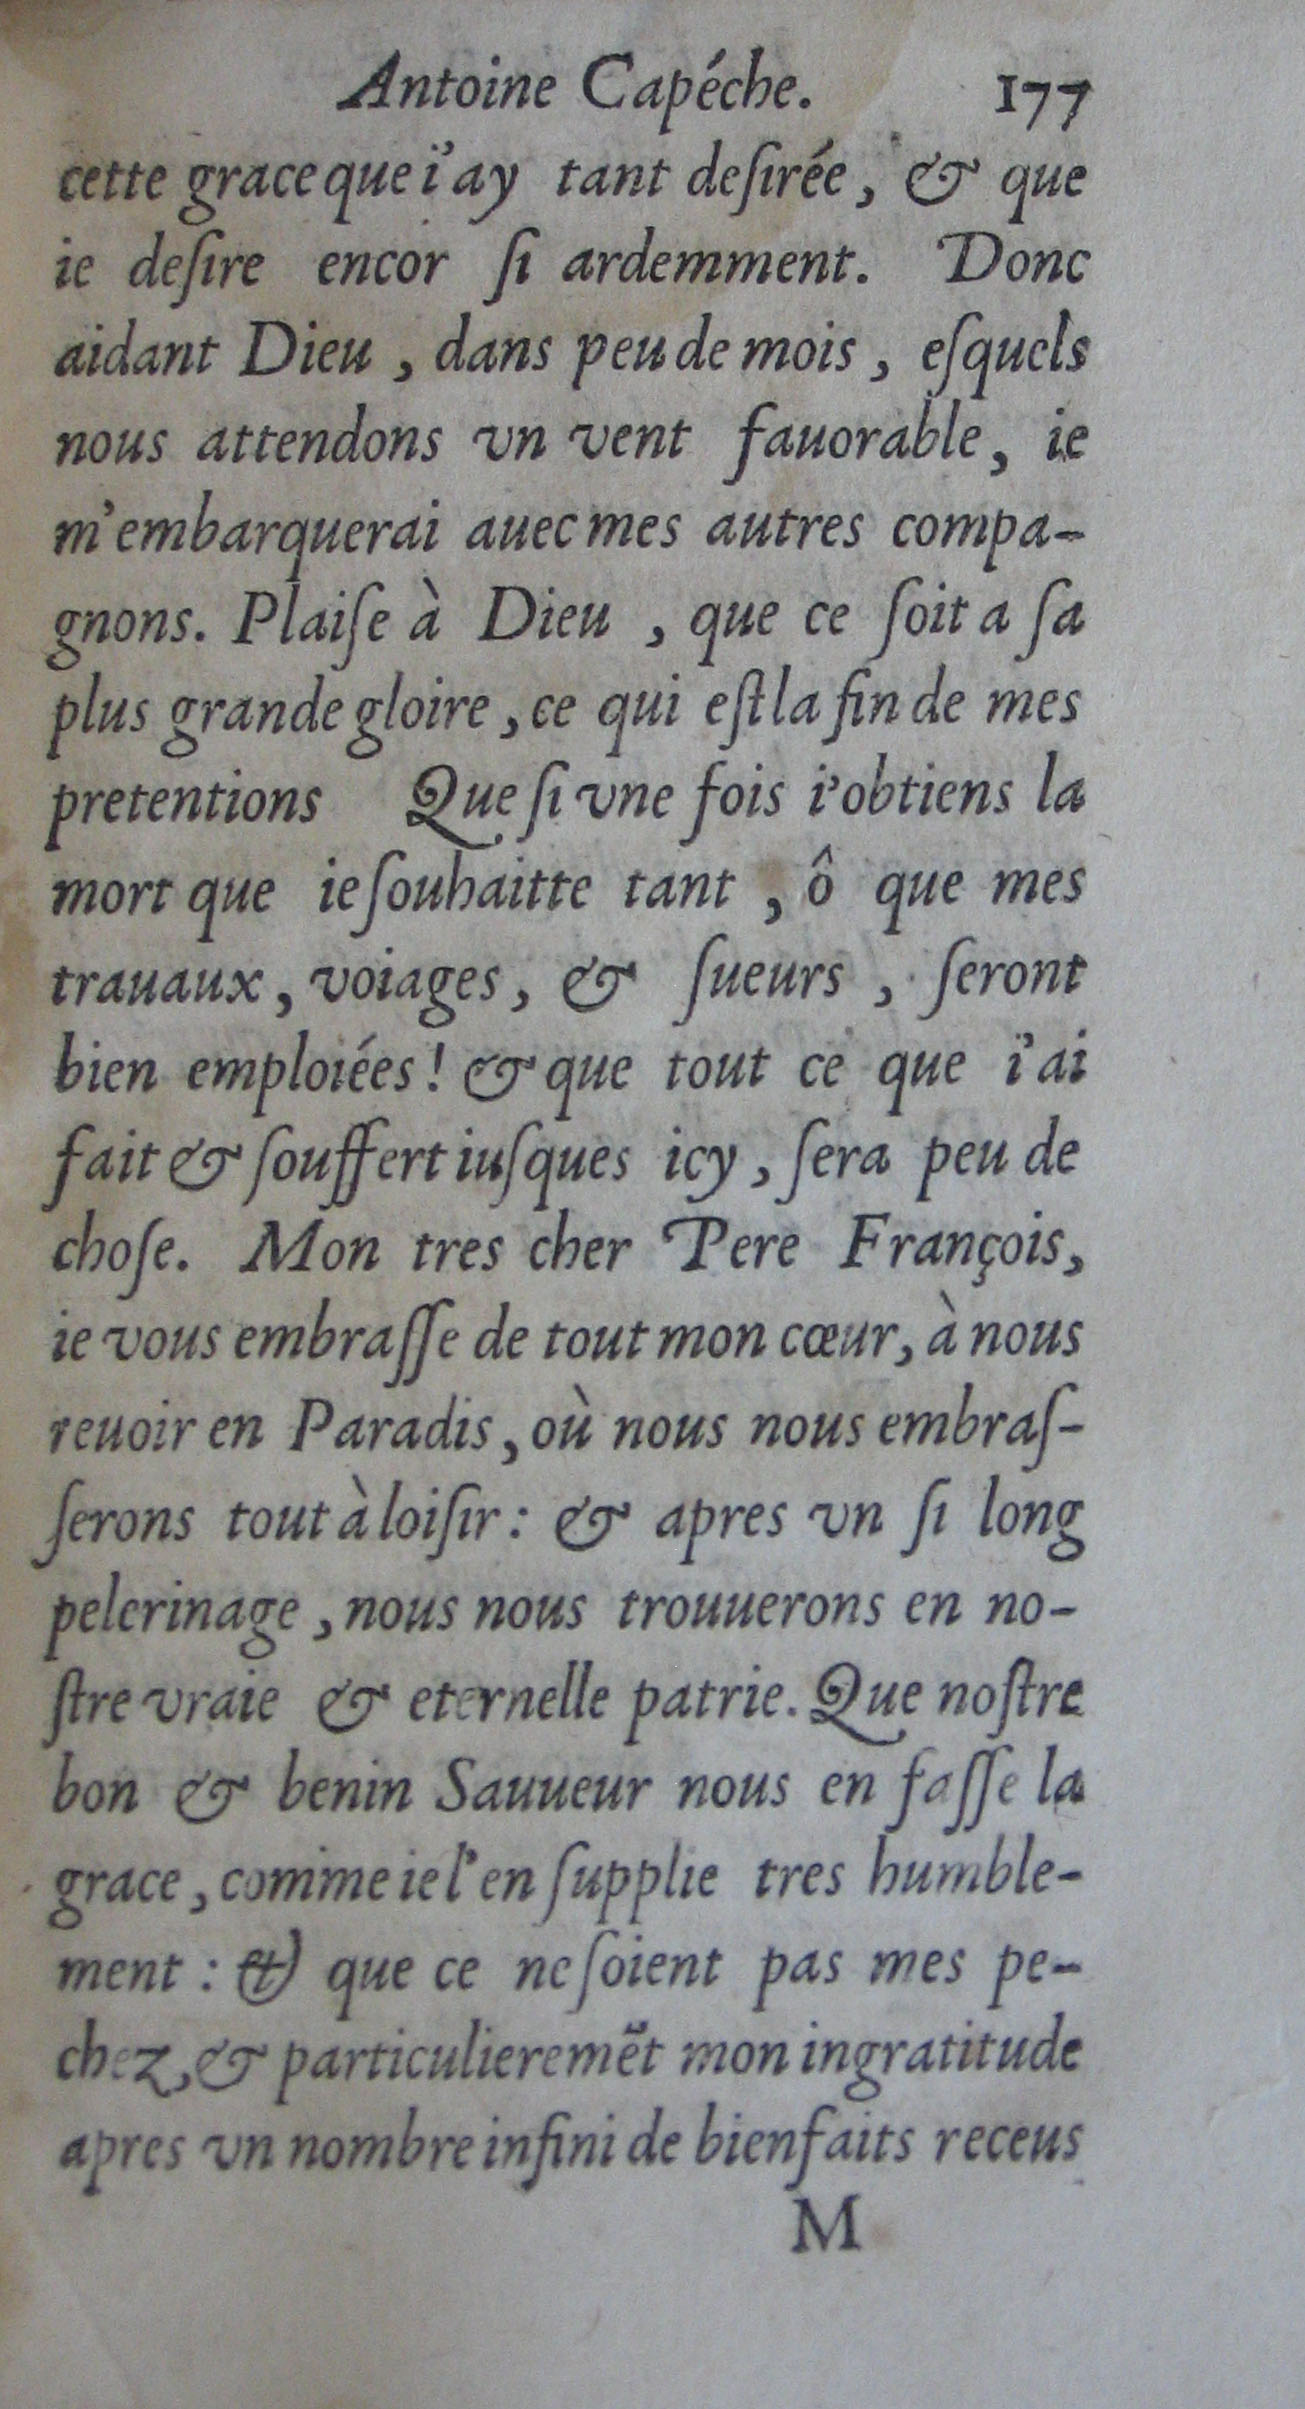 Antoine Capéche. 177
cette grace que i'ay tant deſirée, & que
ie deſire encor ſi ardemment. Donc
aidant Dieu, dans peu de mois, eſquels
nous attendons vn vent fauorable, ie
m'embarquerai auec mes autres compa-
gnons. Plaiſe à Dieu, que ce ſoit a ſa
plus grande gloire, ce qui eſt la fin de mes
pretentions Que ſi vne fois i'obtiens la
mort que ie ſouhaitte tant, ô que mes
trauaux, voiages, & ſueurs, ſeront
bien emploiées! & que tout ce que i'ai
fait & ſouffert iuſques icy, ſera peu de
choſe. Mon tres cher Pere François,
ie vous embraſſe de tout mon cœur, à nous
reuoir en Paradis, où nous nous embraſ-
ſerons tout à loiſir: & apres vn ſi long
pelerinage, nous nous trouuerons en no-
ſtre vraie & eternelle patrie. Que noſtre
bon & benin Sauueur nous en faſſe la
grace, comme ie l'en ſupplie tres humble-
ment: & que ce ne ſoient pas mes pe-
chez, & particulieremẽt mon ingratitude
apres vn nombre infini de bienfaits receus
M